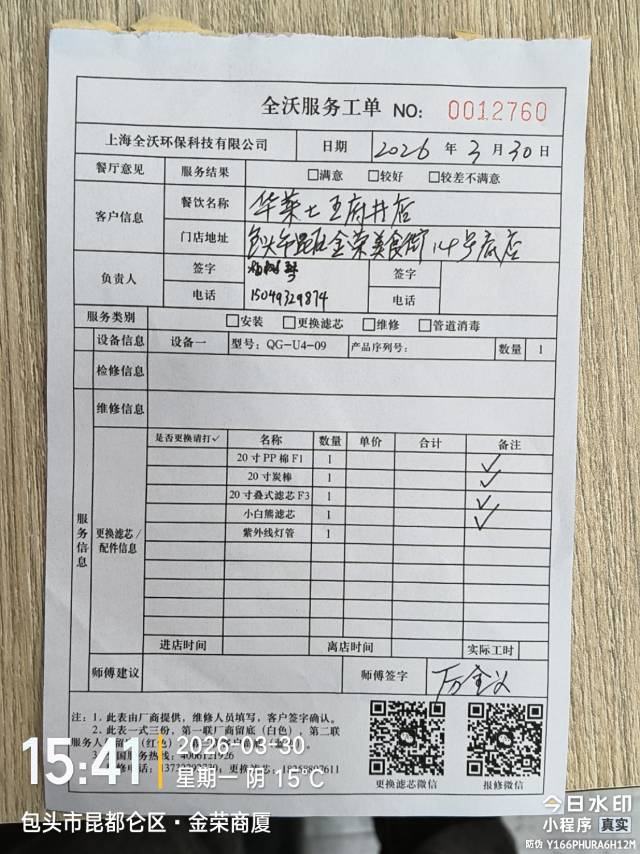 全沃服务工单 NO: 0012760
上海全沃环保科技有限公司 日期 2026 年 3 月 30 日
餐厅意见 服务结果 □满意 □较好 □较差不满意
客户信息 餐饮名称 华莱士王府井店
门店地址 包头市昆区金荣美食街14号底店
负责人 签字 签字
电话 15049329874 电话
服务类别 □安装 □更换滤芯 □维修 □管道消毒
设备信息 设备一 型号: QG-U4-09 产品序列号: 数量 1
检修信息
维修信息
服务信息
更换滤芯/配件信息
是否更换请打✓ 名称 数量 单价 合计 备注
20寸PP棉F1 1 ✓
20寸炭棒 1 ✓
20寸叠式滤芯F3 1 ✓
小白熊滤芯 1 ✓
紫外线灯管 1
进店时间 离店时间 实际工时
师傅建议 师傅签字
注: 1. 此表由厂商提供, 维修人员填写, 客户签字确认。
2. 此表一式三份, 第一联厂商留底 (白色) 第二联
服务人 (红色)
国服务热线: 4006121926
更换滤芯微信 报修微信
15:41 2026-03-30
星期一 阴 15℃
包头市昆都仑区·金荣商厦
今日水印
小程序 真实
防伪 Y166PHURA6H12M